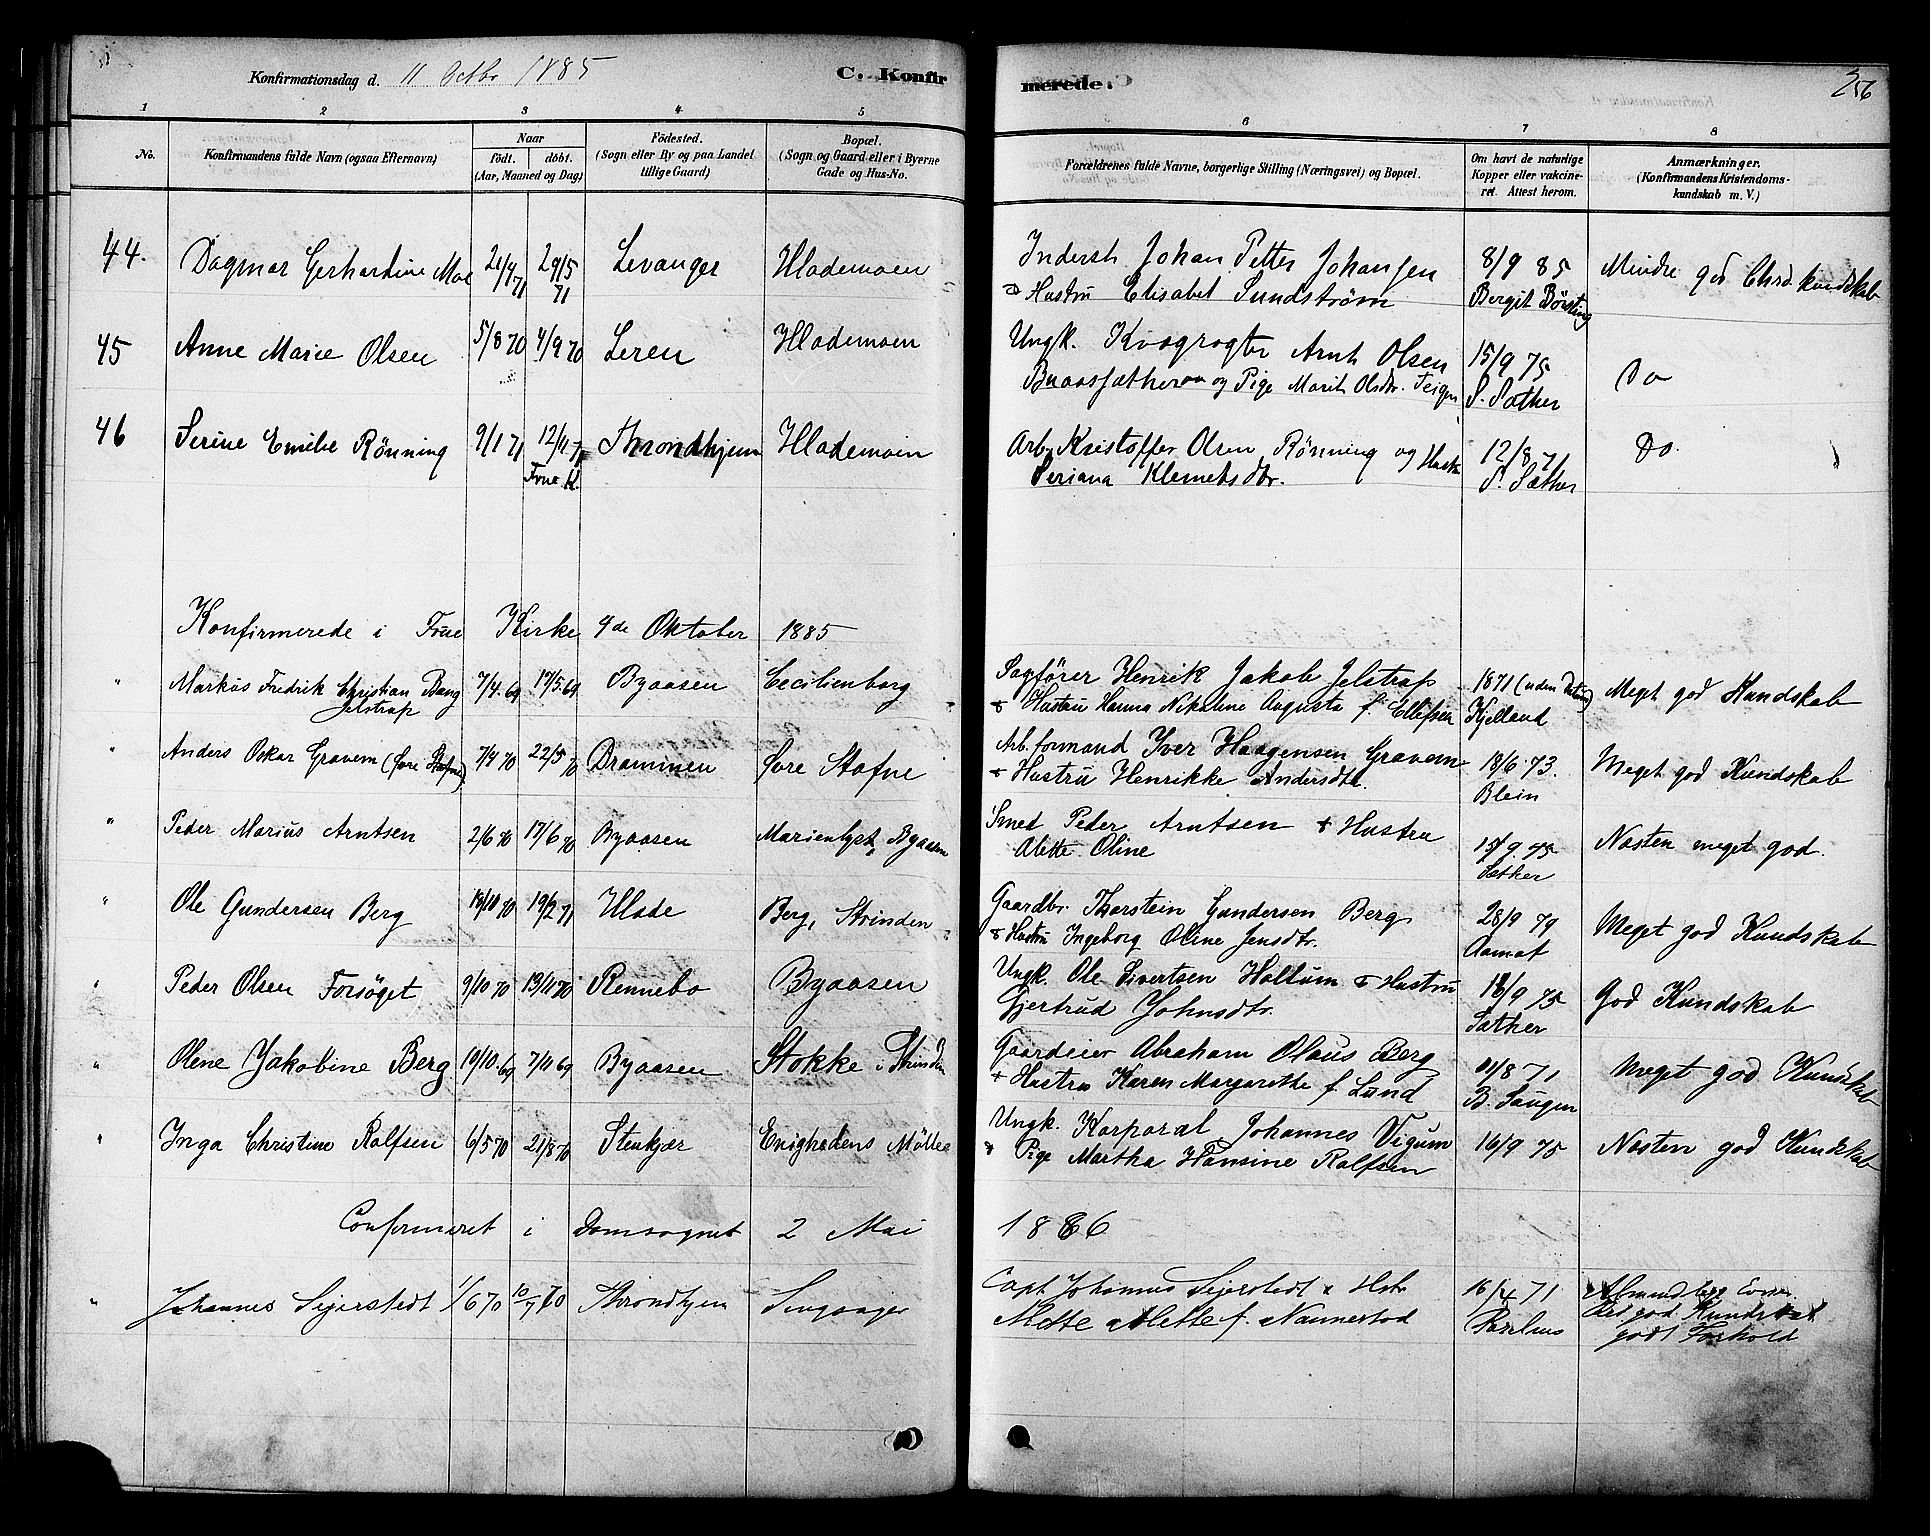 Konfirmationsdag d. 11 Octbr 1885 C. Konfirmerede. 256
1 2 3 4 5 6 7 8
No. Konfirmandens fulde Navn (ogsaa Efternavn)
Naar födt. döbt. (Aar, Maaned og Dag)
Födested. (Sogn eller By og paa Landet tillige Gaard)
Bopæl. (Sogn og Gaard eller i Byerne Gade og Hus-No.
Forældrenes fulde Navne, borgerlige Stilling (Næringsvei) og Bopæl.
Om havt de naturlige Kopper eller vakcineret. Attest herom.
Anmærkninger. (Konfirmandens Kristendomskundskab m. V.)
44. Dagmar Gerhardine Moe 21/4 71 29/5 71 Levanger Hlademoen Inderst Johan Petter Johansen 8/9 85 Mindre god Chrd.kundskab
Hustru Elisabet Sundström Bergit Börsting
45 Anne Marie Olsen 5/8 70 4/9 70 Leren Hlademoen Ungk. Kvægrögter Arnt Olsen 15/9 75 Do
og Pige Marit Olsdtr. S. Sæther
46 Serine Emilie Rönning 9/1 71 12/4 71 Throndhjem Hlademoen Arb. Kristoffer Olsen Rönning og Hustr 12/8 71 Do.
Frue K. Seriana Klemetsdtr. S. Sæther
Konfirmerede i Frue Kirke 4de Oktober 1885
" Markus Fredrik Christian Bang 7/4. 69 17/5. 69 Byaasen Cecilienborg Sagförer Henrik Jakob Jelstrap 1871 (uden Datum) Meget god Kundskab
Jelstrap + Hustru Hanna Nikoline Augusta f. Ellefsen Kjelland
" Anders Oskar Gravem (Övre Stafne) 7/4 70 22/5 70 Drammen Övre Stafne Arb.formand Iver Haagensen Gravem 18/6 73. Meget god Kundskab
+ Hustru Henrikke Andersdtr. Blein
" Peder Marius Arntsen 2/6 70 17/6 70 Byaasen Marienlyst, Byaasen Smed Peder Arntsen + Hustru 15/9. 75 Næsten meget god.
Alette Oline Sæther
" Ole Gundersen Berg 18/10 70 19/2 71 Hlade Berg, Strinden Gaardbr. Thorstein Gundersen Berg 28/9 79 Meget god Kundskab
+ Hustru Ingeborg Oline Jensdtr. Aamot
" Peder Olsen Forsöget 9/10 70 13/11 70 Rennebo Byaasen Ungk. Ole Sivertsen Holtum + Hustru 18/9 75 God Kundskab
Gjertrud Johnsdtr. Sæther
" Olene Jakobine Berg 19/10. 69 7/11 69 Byaasen Stokke i Strinden Gaardeier Abraham Olaus Berg 01/8 71 Meget god Kundskab
+ Hustru Karen Margarethe f. Lund B. Saugen
" Inga Christine Ralfsen 6/5 70 21/8 70 Stenkjær Enighedens Mölle Ungk. Korporal Johannes Vigum 16/9 75 Næsten god Kundskab
Pige Martha Hansine Ralfsen
Confirmeret i Domsognet 2 Mai 1886
" Johannes Sejerstedt 1/6 70 10/7 70 Throndhjem Singsager Capt. Johannes Sejerstedt & Hstr 16/4 71
Mette Alette f. Nannestad god Kundskab
godt Forhold